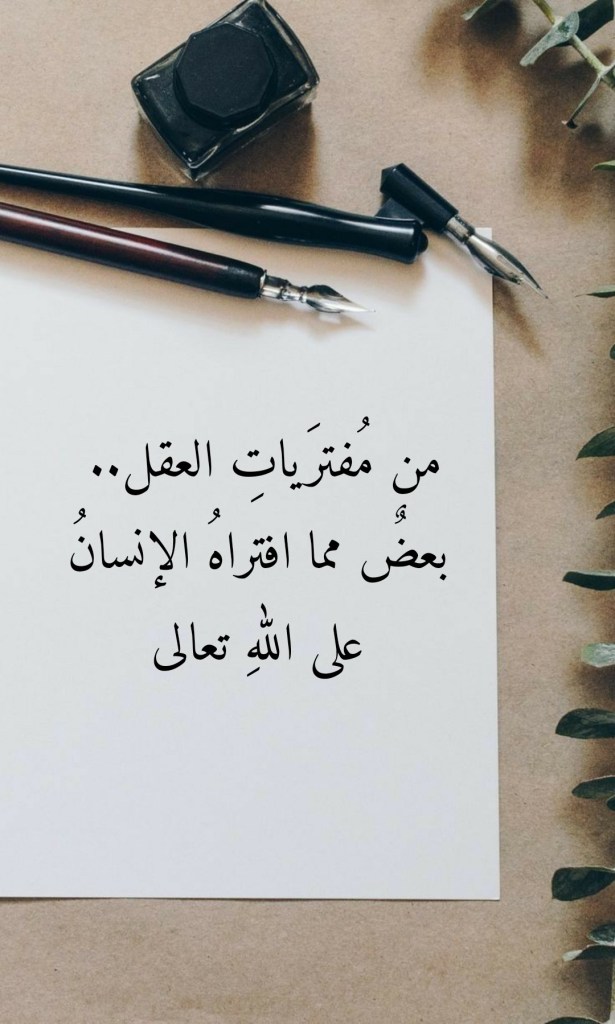 من مُفترَياتِ العقل..
بعضٌ مما افتراهُ الإنسانُ
على اللهِ تعالى